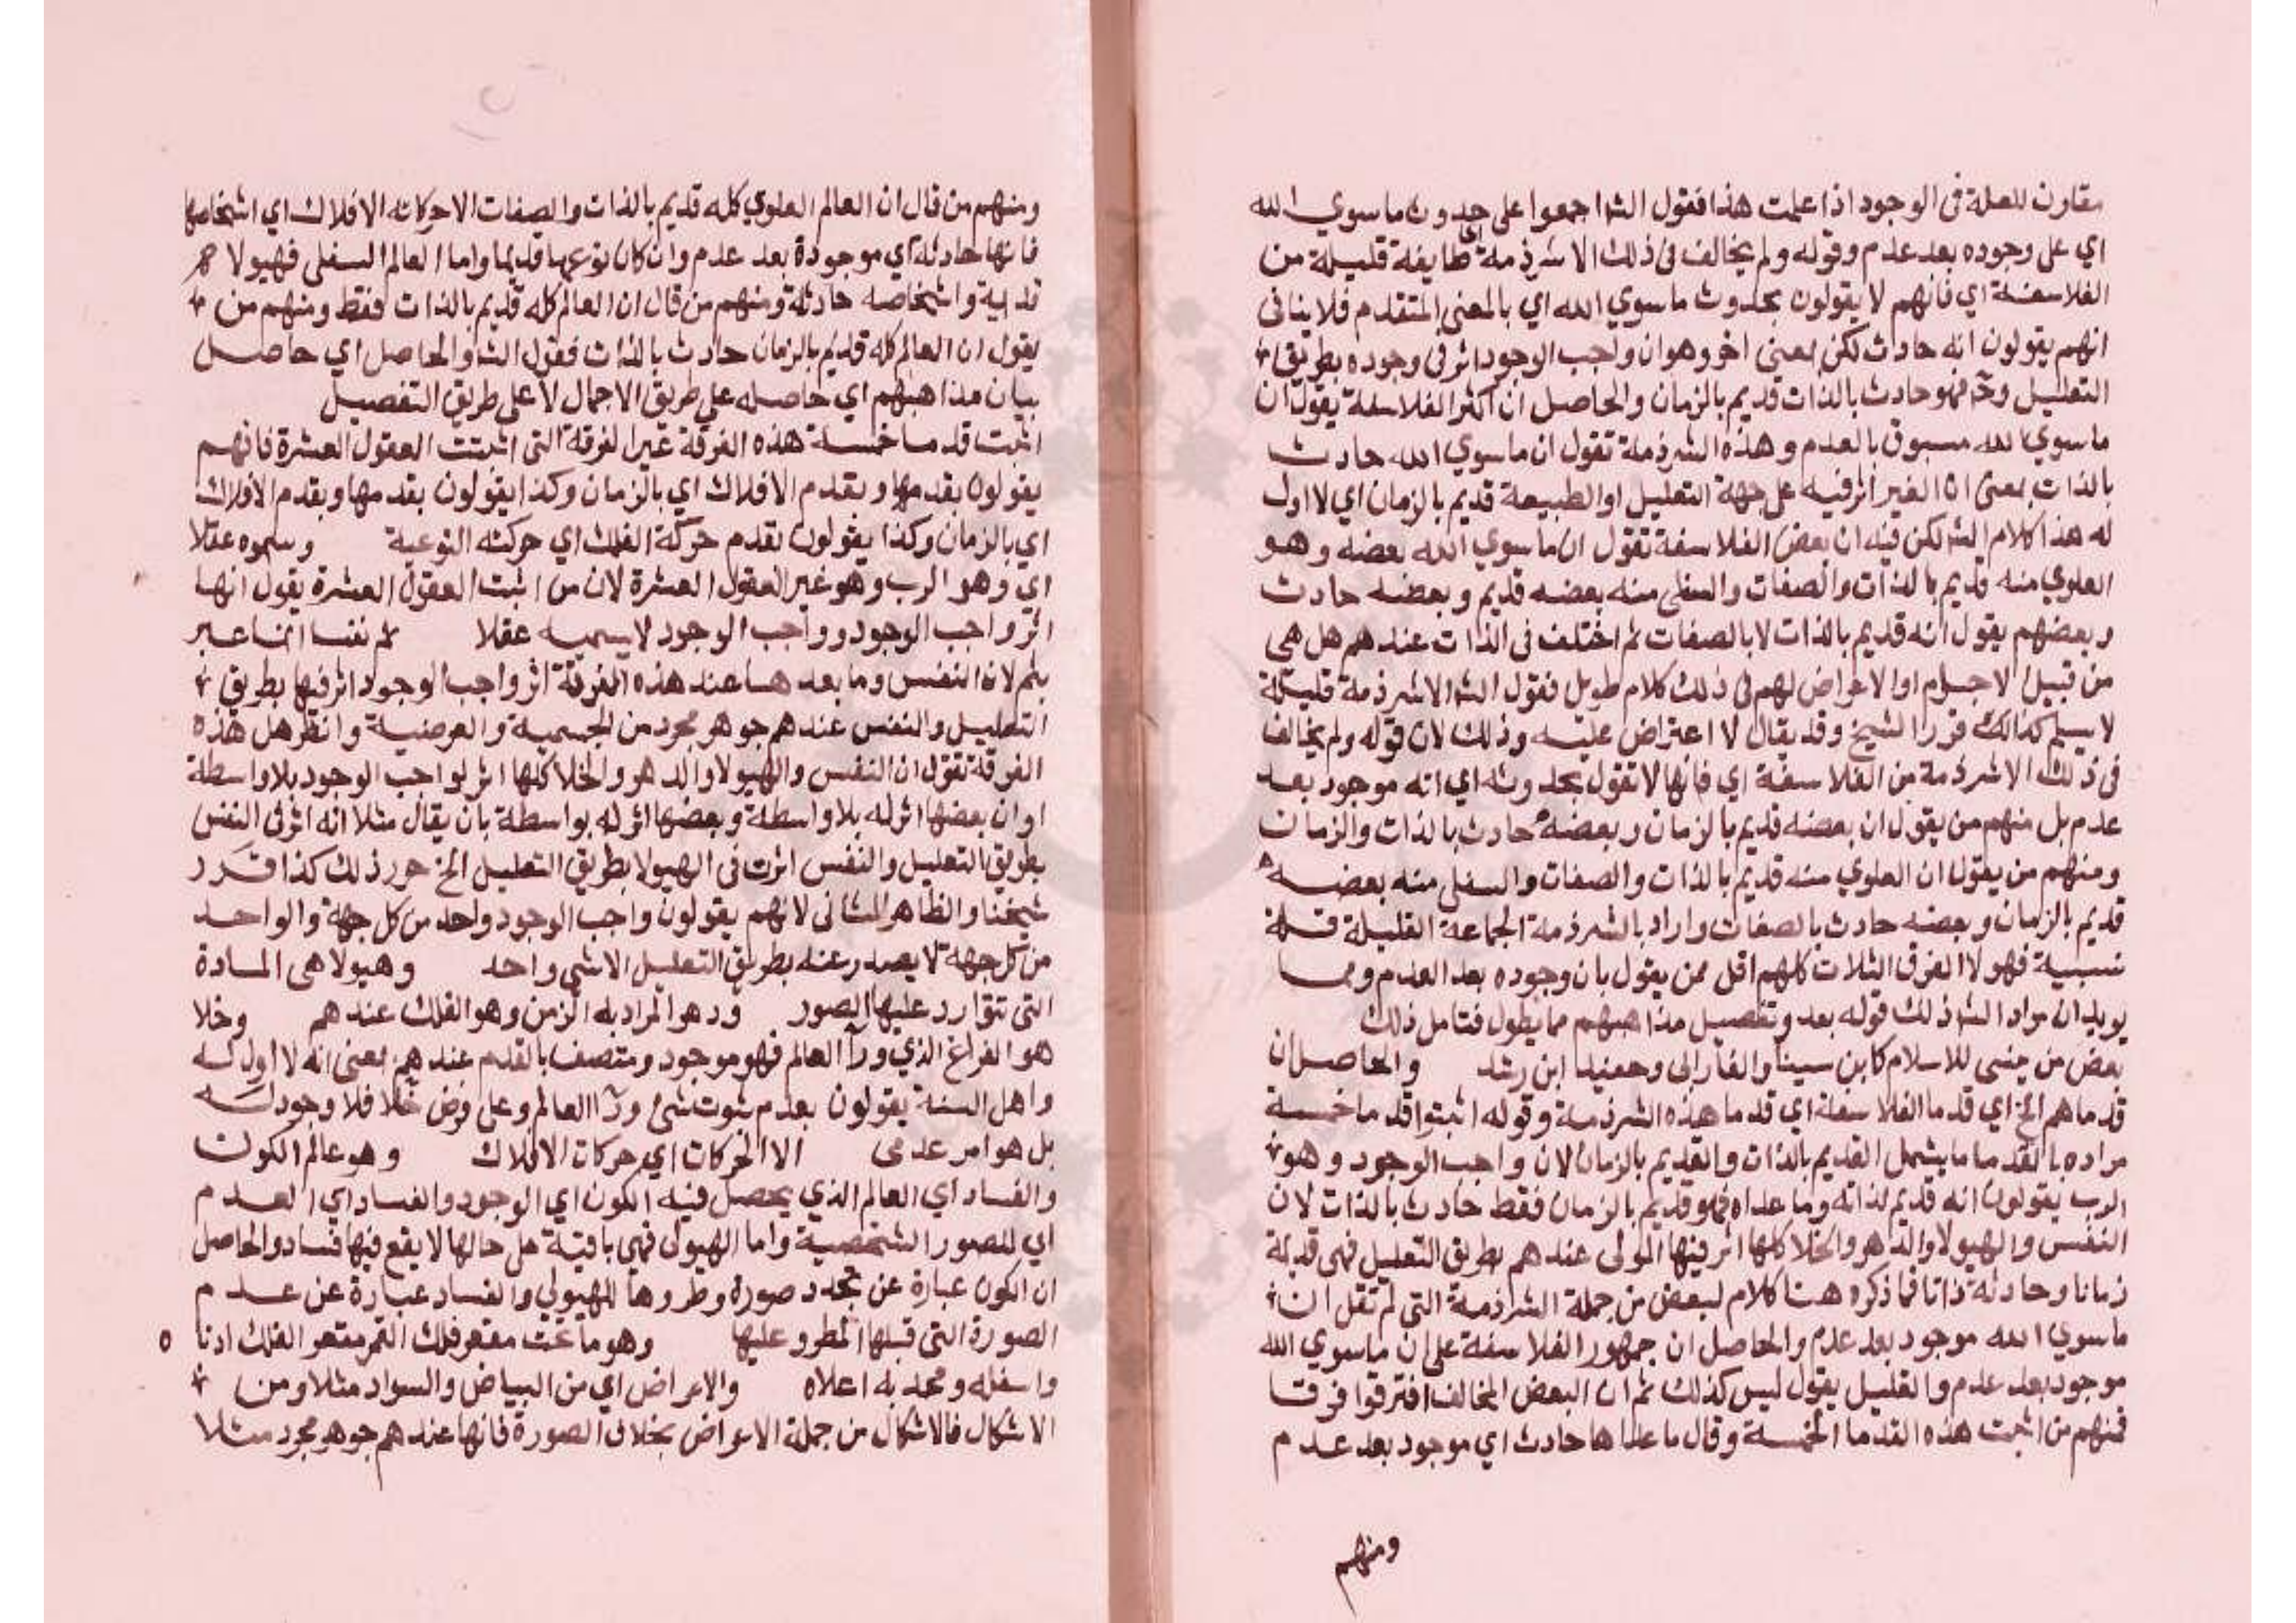 مقارن للعلة فى الوجود اذا علمت هذا فقول الشه اجمعوا على حدوث ما سوي الله
اي على وجوده بعد عدم وقوله ولم يخالف فى ذلك الا شرذمة اي طايفة قليلة من
الفلاسفة اي فانهم لا يقولون بحدوث ما سوي الله اي بالمعنى المتقدم فلا ينافى
انهم يقولون انه حادث لكن بمعنى اخر وهو ان واجب الوجود اثر فى وجوده بطريق
التعليل وح فهو حادث بالذات قديم بالزمان والحاصل ان اكثر الفلاسفة يقول ان
ما سوي الله مسبوق بالعدم وهذه الشرذمة تقول ان ما سوي الله حادث
بالذات بمعنى ان الغير اثر فيه على جهة التعليل او الطبيعة قديم بالزمان اي لا اول
له هذا كلام الشه لكن فيه ان بعض الفلاسفة تقول ان ما سوي الله بعضه وهو
العلوي منه قديم بالذات والصفات والسفلى منه بعضه قديم وبعضه حادث
وبعضهم يقول انه قديم بالذات لا بالصفات ثم اختلف فى الذات عندهم هل هى
من قبيل الاجسام او الاعراض لهم فى ذلك كلام طويل فقول الشه الا شرذمة قليلة
لا يسلم كذالك قرر الشيخ وقد يقال لا اعتراض عليه وذلك لان قوله ولم يخالف
فى ذلك الا شرذمة من الفلاسفة اي فانها لا تقول بحدوثه اي انه موجود بعد
عدم بل منهم من يقول ان بعضه قديم بالزمان وبعضه حادث بالذات والزمان
ومنهم من يقول ان العلوي منه قديم بالذات والصفات والسفلى منه بعضه
قديم بالزمان وبعضه حادث بالصفات واراد بالشرذمة الجماعة القليلة قلة
نسبية فهولا الفرق الثلاث كلهم اقل ممن يقول بان وجوده بعد العدم ومما
يويد ان مراد الشه ذلك قوله بعد وتفصيل مذاهبهم مما يطول فتامل ذلك
بعض من ينتمى للاسلام كابن سينا والفارابى وحفيد ابن رشد والحاصل ان
قدماهم الخ اي قدما الفلاسفة اي قدما هذه الشرذمة وقوله اثبتوا قدما خمسة
مراده بالقدما ما يشمل القديم بالذات والقديم بالزمان لان واجب الوجود وهو
الرب يقولون انه قديم لذاته وما عداه فهو قديم بالزمان فقط حادث بالذات لان
النفس والهيولا والدهر والخلا كلها اثر فيها المولى عندهم بطريق التعليل فهى قديمة
زمانا وحادثة ذاتا فما ذكره هنا كلام لبعض من جملة الشرذمة التى لم تقل ان
ما سوي الله موجود بعد عدم والحاصل ان جمهور الفلاسفة على ان ما سوي الله
موجود بعد عدم والقليل يقول ليس كذلك ثم ان البعض المخالف افترقوا فرقا
فمنهم من اثبت هذه القدما الخمسة وقال ما عداها حادث اي موجود بعد عدم
ومنهم
ومنهم من قال ان العالم العلوي كله قديم بالذات والصفات الا حركاته الافلاك اي اشخاصها
فانها حادثة اي موجودة بعد عدم وان كان نوعها قديما واما العالم السفلى فهيولاهم
قديمة واشخاصه حادثة ومنهم من قال ان العالم كله قديم بالذات فقط ومنهم من
يقول ان العالم كله قديم بالزمان حادث بالذات فقول الشه والحاصل اي حاصل
بيان مذاهبهم اي حاصله على طريق الاجمال لا على طريق التفصيل
اثبت قدما خمسة هذه الفرقة غير الفرقة التى اثبتت العقول العشرة فانهم
يقولون بقدمها وبقدم الافلاك اي بالزمان وكذا يقولون بقدمها وبقدم الافلاك
اي بالزمان وكذا يقولون بقدم حركة الفلك اي حركته النوعية وسموه عقلا
اي وهو الرب وهو غير العقول العشرة لان من اثبت العقول العشرة يقول انها
اثر واجب الوجود وواجب الوجود لا يسميه عقلا ثم نفسا انما عبر
بثم لان النفس وما بعدها عند هذه الفرقة اثر واجب الوجود اثر فيها بطريق
التعليل والنفس عندهم جوهر مجرد من الجسمية والعرضية وانظر هل هذه
الفرقة تقول ان النفس والهيولا والدهر والخلا كلها اثر لواجب الوجود بلا واسطة
او ان بعضها اثر له بلا واسطة وبعضها اثر له بواسطة بان يقال مثلا انه اثر فى النفس
بطريق التعليل والنفس اثرت فى الهيولا بطريق التعليل الخ حور ذلك كذا قرر
شيخنا والظاهر الثانى لانهم يقولون واجب الوجود واحد من كل جهة والواحد
من كل جهة لا يصدر عنه بطريق التعليل الا شى واحد وهيولا هى المادة
التى تتوارد عليها الصور ودهر المراد به الزمن وهو الفلك عندهم وخلا
هو الفراغ الذي ورا العالم فهو موجود ومتصف بالقدم عندهم بمعنى انه لا اول له
واهل السنة يقولون بعدم ثبوت شى ورا العالم وعلى فرض خلا فلا وجود له
بل هو امر عدمى الا الحركات اي حركات الافلاك وهو عالم الكون
والفساد اي العالم الذي يحصل فيه الكون اي الوجود والفساد اي العدم
اي للصور الشخصية واما الهيولى فهى باقية على حالها لا يقع فيها فساد والحاصل
ان الكون عبارة عن تجدد صورة وطروها للهيولي والفساد عبارة عن عدم
الصورة التى قبلها المطرو عليها وهو ما تحت مقعر فلك القمر مقعر الفلك ادنا ه
واسفله ومحدبه اعلاه والاعراض اي من البياض والسواد مثلا ومن
الاشكال فالاشكال من جملة الاعراض بخلاف الصورة فانها عندهم جوهر مجرد مثلا